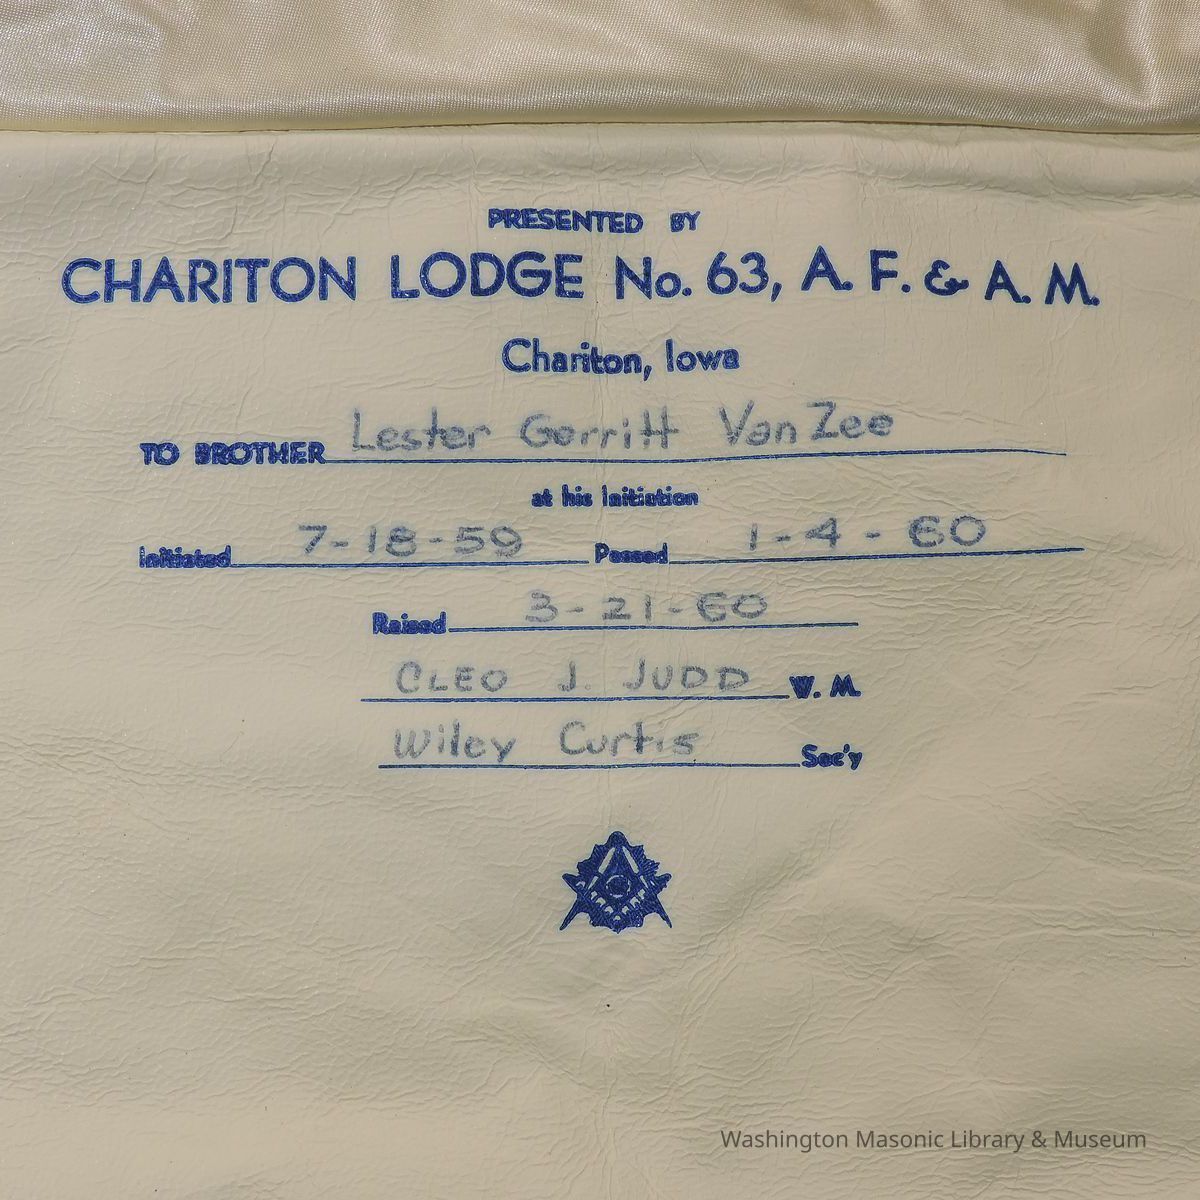 PRESENTED BY
CHARITON LODGE No. 63, A. F. & A. M.
Chariton, Iowa
TO BROTHER Lester Gerritt Van Zee
at his Initiation
Initiated 7-18-59 Passed 1-4-60
Raised 3-21-60
CLEO J. JUDD W. M.
Wiley Curtis Sec'y
Washington Masonic Library & Museum